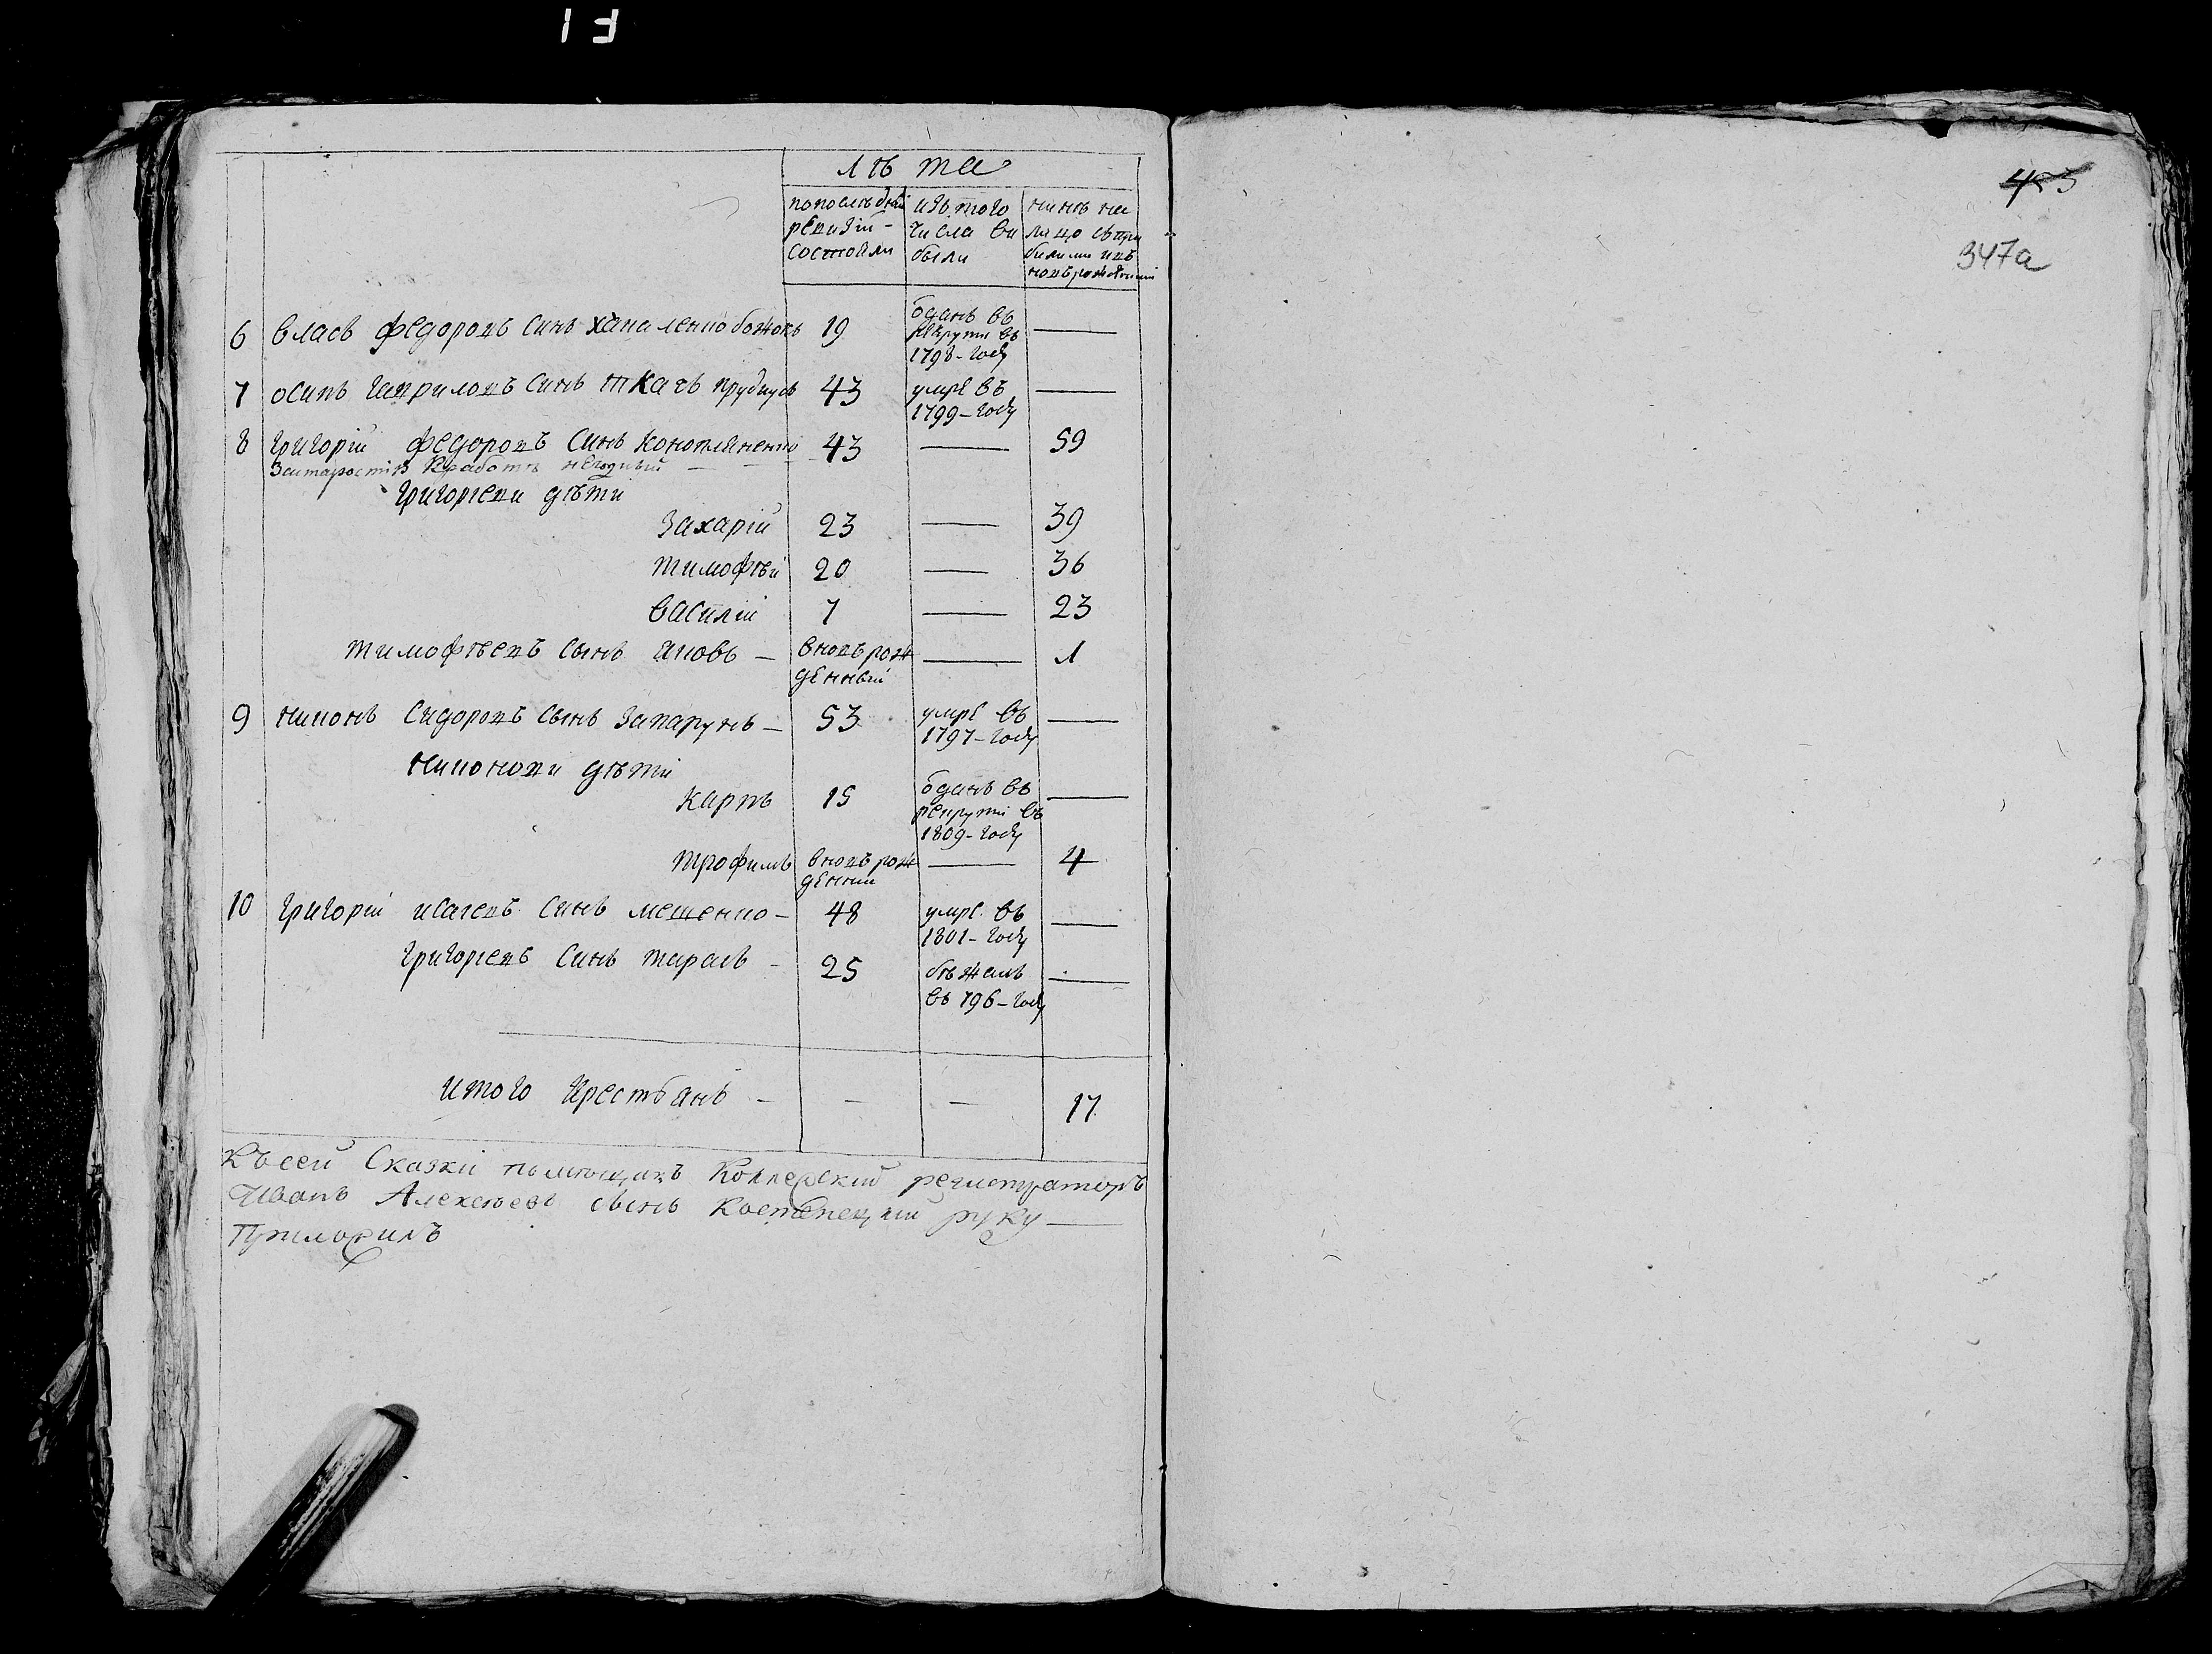 лѣта
попослѣдней ревизіи состояли
изъ того числа выбыли
нинѣ на лицо съ прибилими и въновъ рожденними
6 власъ федоровъ синъ 19 одань въ рекрути въ 1798-году —
7 осипъ гавриловъ синъ ткачъ 43 умре въ 1799-году —
8 григорій федоровъ синъ конопляненко 43 — 59
За старостію к работѣ негодный — —
григориеви дѣти
Захарій 23 — 39
тимофѣй 20 — 36
василій 7 — 23
тимофѣевъ сынъ яковъ — вновъ рожденный — 1
9 никонъ сидоровъ сынъ запарунъ — 53 умре въ 1797-году —
никонови дѣти
карпъ 15 одань въ рекрути въ 1809-году —
трофимъ вновъ рожденній — 4
10 григорій исаевъ синъ мещенко — 48 умре въ 1801-году —
григориевъ синъ тарасъ — 25 бѣжалъ въ 796-году —
итого крестьянъ — — — 17
Къ сей Сказки помѣщикъ Коллежский регистраторъ
Иванъ Алексѣевъ сынъ Костенецкий руку —
Приложилъ
347а